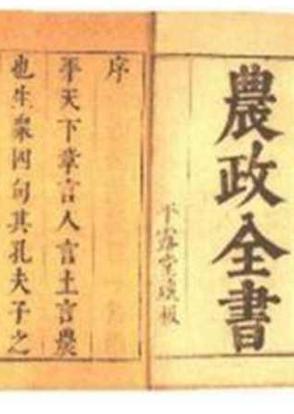 農政全書
平露堂藏板
序
平天下章言人言土言農
也生衆四句其孔夫子之